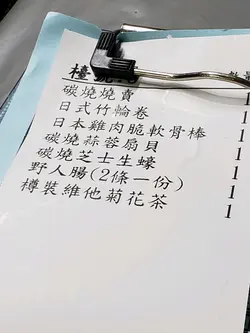 碳燒燒賣 1
日式竹輪卷 1
日本雞肉脆軟骨棒 1
碳燒蒜蓉扇貝 1
碳燒芝士生蠔 1
野人腸(2條一份) 1
樽裝維他菊花茶 1